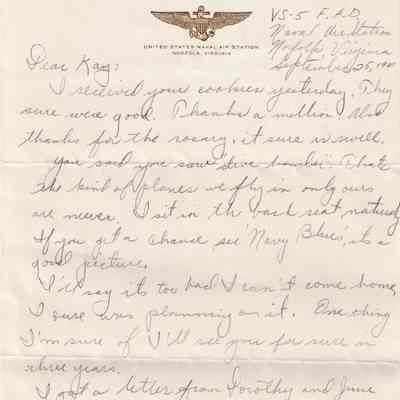 UNITED STATES NAVAL AIR STATION
NORFOLK, VIRGINIA
VS-5 F.A.D.
Naval Air Station
Norfolk Virginia
September 25, 19
Dear Kay:
I received your cookies yesterday. They
sure were good. Thanks a million. Also
thanks for the rosary, it sure is swell.
You said you saw "Dive bomber". Thats
the kind of planes we fly in only ours
are newer. I sit in the back seat naturally
If you get a chance see "Navy Blues", its a
good picture.
I'll say its too bad I can't come home,
I sure was planning on it. One thing
I'm sure of I'll see you for sure in
three years.
I got a letter from Dorothy and June